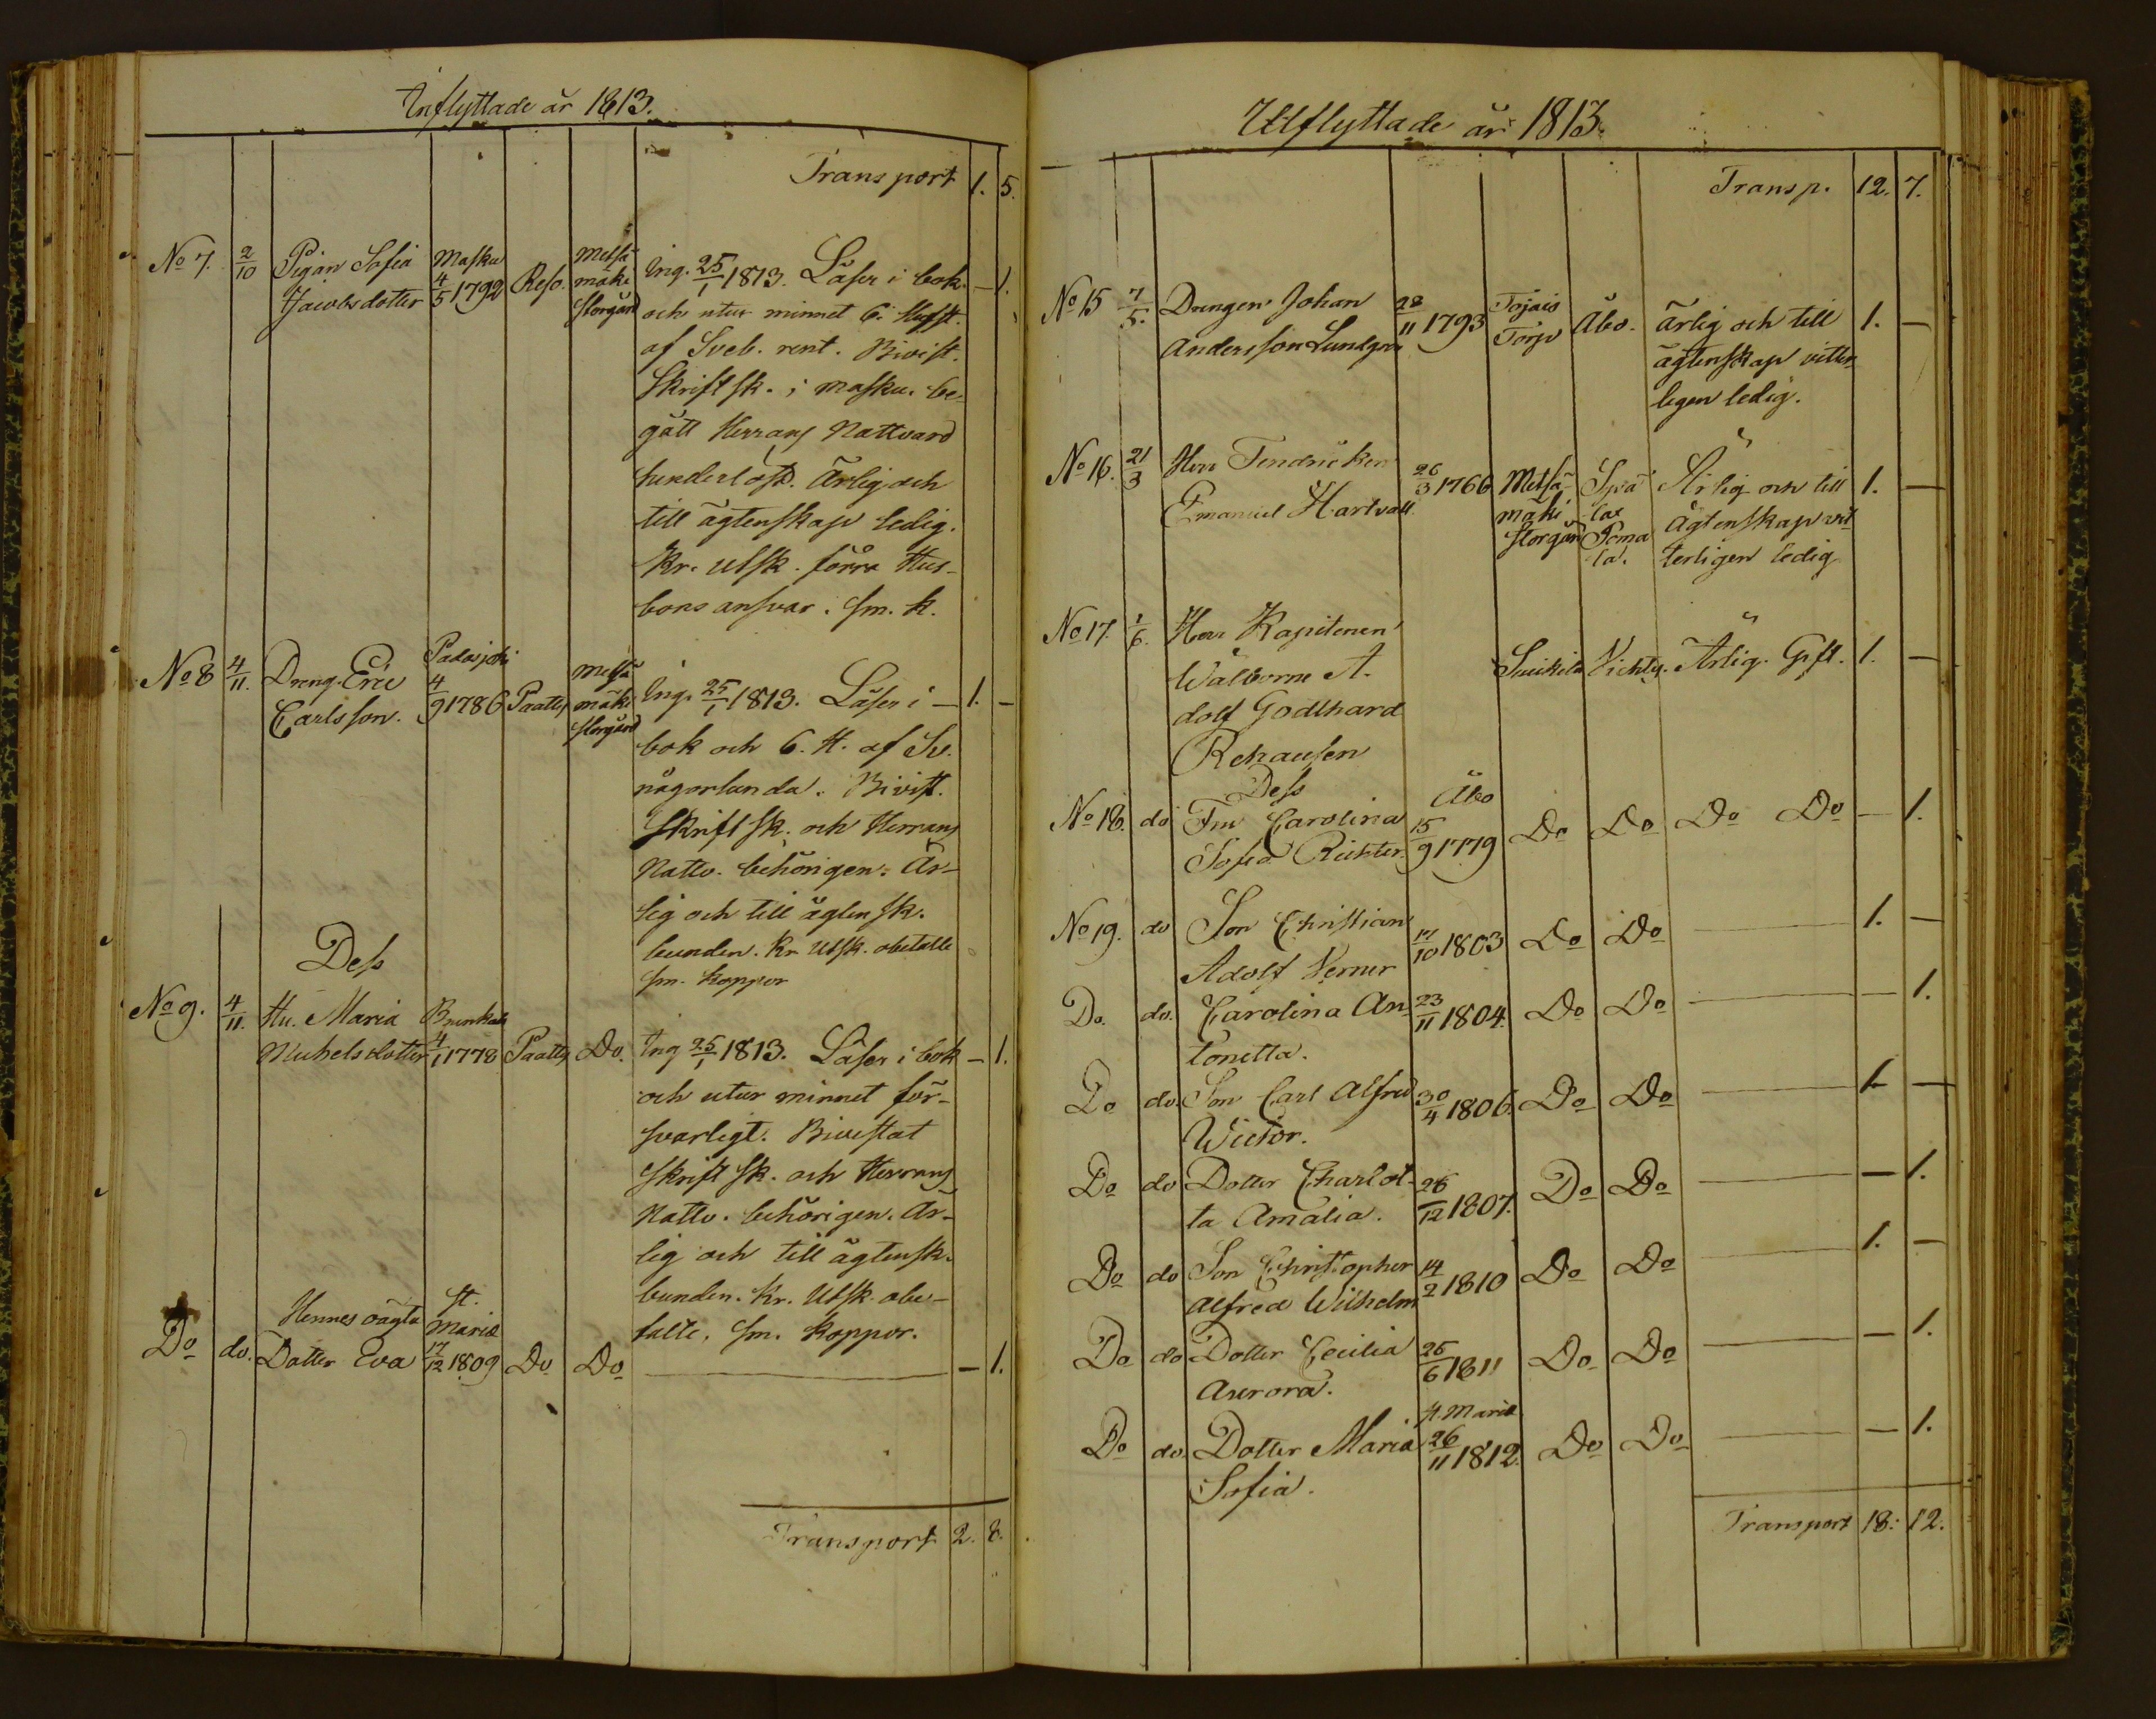 Inflyttade år 1813.
Transport 1. 5.
No 7. 2/10 Pigan Sofia Jacobsdotter Masku 4/5 1792 Reso. Metsä mäki storgård Ing. 25/1 1813. Läser i bok — 1.
och utur minnet 6. Hufst.
af Sveb. rent. Bivist.
Skriftsk. i Masku. be-
gått Herrans Nattvard
hinderlöst. Ärlig och
till ägtenskap ledig.
Kr. Utsk. förra Hus-
bons ansvar. Sm. k.
No 8 4/11. Dreng. Eric Carlsson. Padasjoki 4/9 1786 Paattis Metsä mäki storgård Ing. 25/1 1813. Läser i — 1. —
bok och 6. H. af Sv.
någorlunda. Bivist.
Skriftsk. och Herrans
Nattv. behörigen. Är-
lig och till ägtensk.
bunden. Kr. Utsk. obetalte
Sm. koppor
Dess
No 9. 4/11. Hu. Maria Michelsdotter 4/1 1778 Paattis Do. Ing 25/1 1813. Läser i bok — 1.
och utur minnet för-
svarligt. Bivistat
Skriftsk. och Herrans
Nattv. behörigen. Är-
lig och till ägtensk.
bunden. Kr. Utsk. obe-
talte. Sm. koppor.
Do do. Hennes oägta Dotter Eva St. Mariæ 17/12 1809 Do Do — — 1.
Transport 2. 8.
Utflyttade år 1813.
Transp. 12. 7.
No 15 7/5. Drengen Johan Andersson Lundgren 28/11 1793 Tojais Torp Åbo. Ärlig och till 1. —
ägtenskap vitter-
ligen ledig.
No 16. 21/3 Herr Fendricken Emanuel Hartvall 26/3 1766 Metsä- mäki storgård Ärlig och till 1. —
Ägtenskap vit-
terligen ledig
No 17. 1/6. Herr Kapitenen Suikila Vichtis. Ärlig. Gift. 1. —
Wälborne A-
dolf Godthard
Rehausen
Dess
No 18. do Fru Carolina Sofia Richter. Åbo 15/9 1779 Do Do Do Do — 1.
No 19. do Son Christian Adolf Verner 17/10 1803 Do Do — 1. —
Do. do. Carolina An- tonetta. 23/11 1804. Do Do — — 1.
Do do. Son Carl Alfred Wictor. 30/4 1806. Do Do — 1 —
Do do Dotter Charlot- ta Amalia. 26/12 1807. Do Do — — 1.
Do do Son Christopher Alfred Wilhelm 14/2 1810 Do Do — 1. —
Do do Dotter Cecilia Aurora. 26/6 1811 Do Do — — 1.
Do do. Dotter Maria Sofia. St. Mariæ 26/11 1812. Do Do — — 1.
Transport 18. 12.